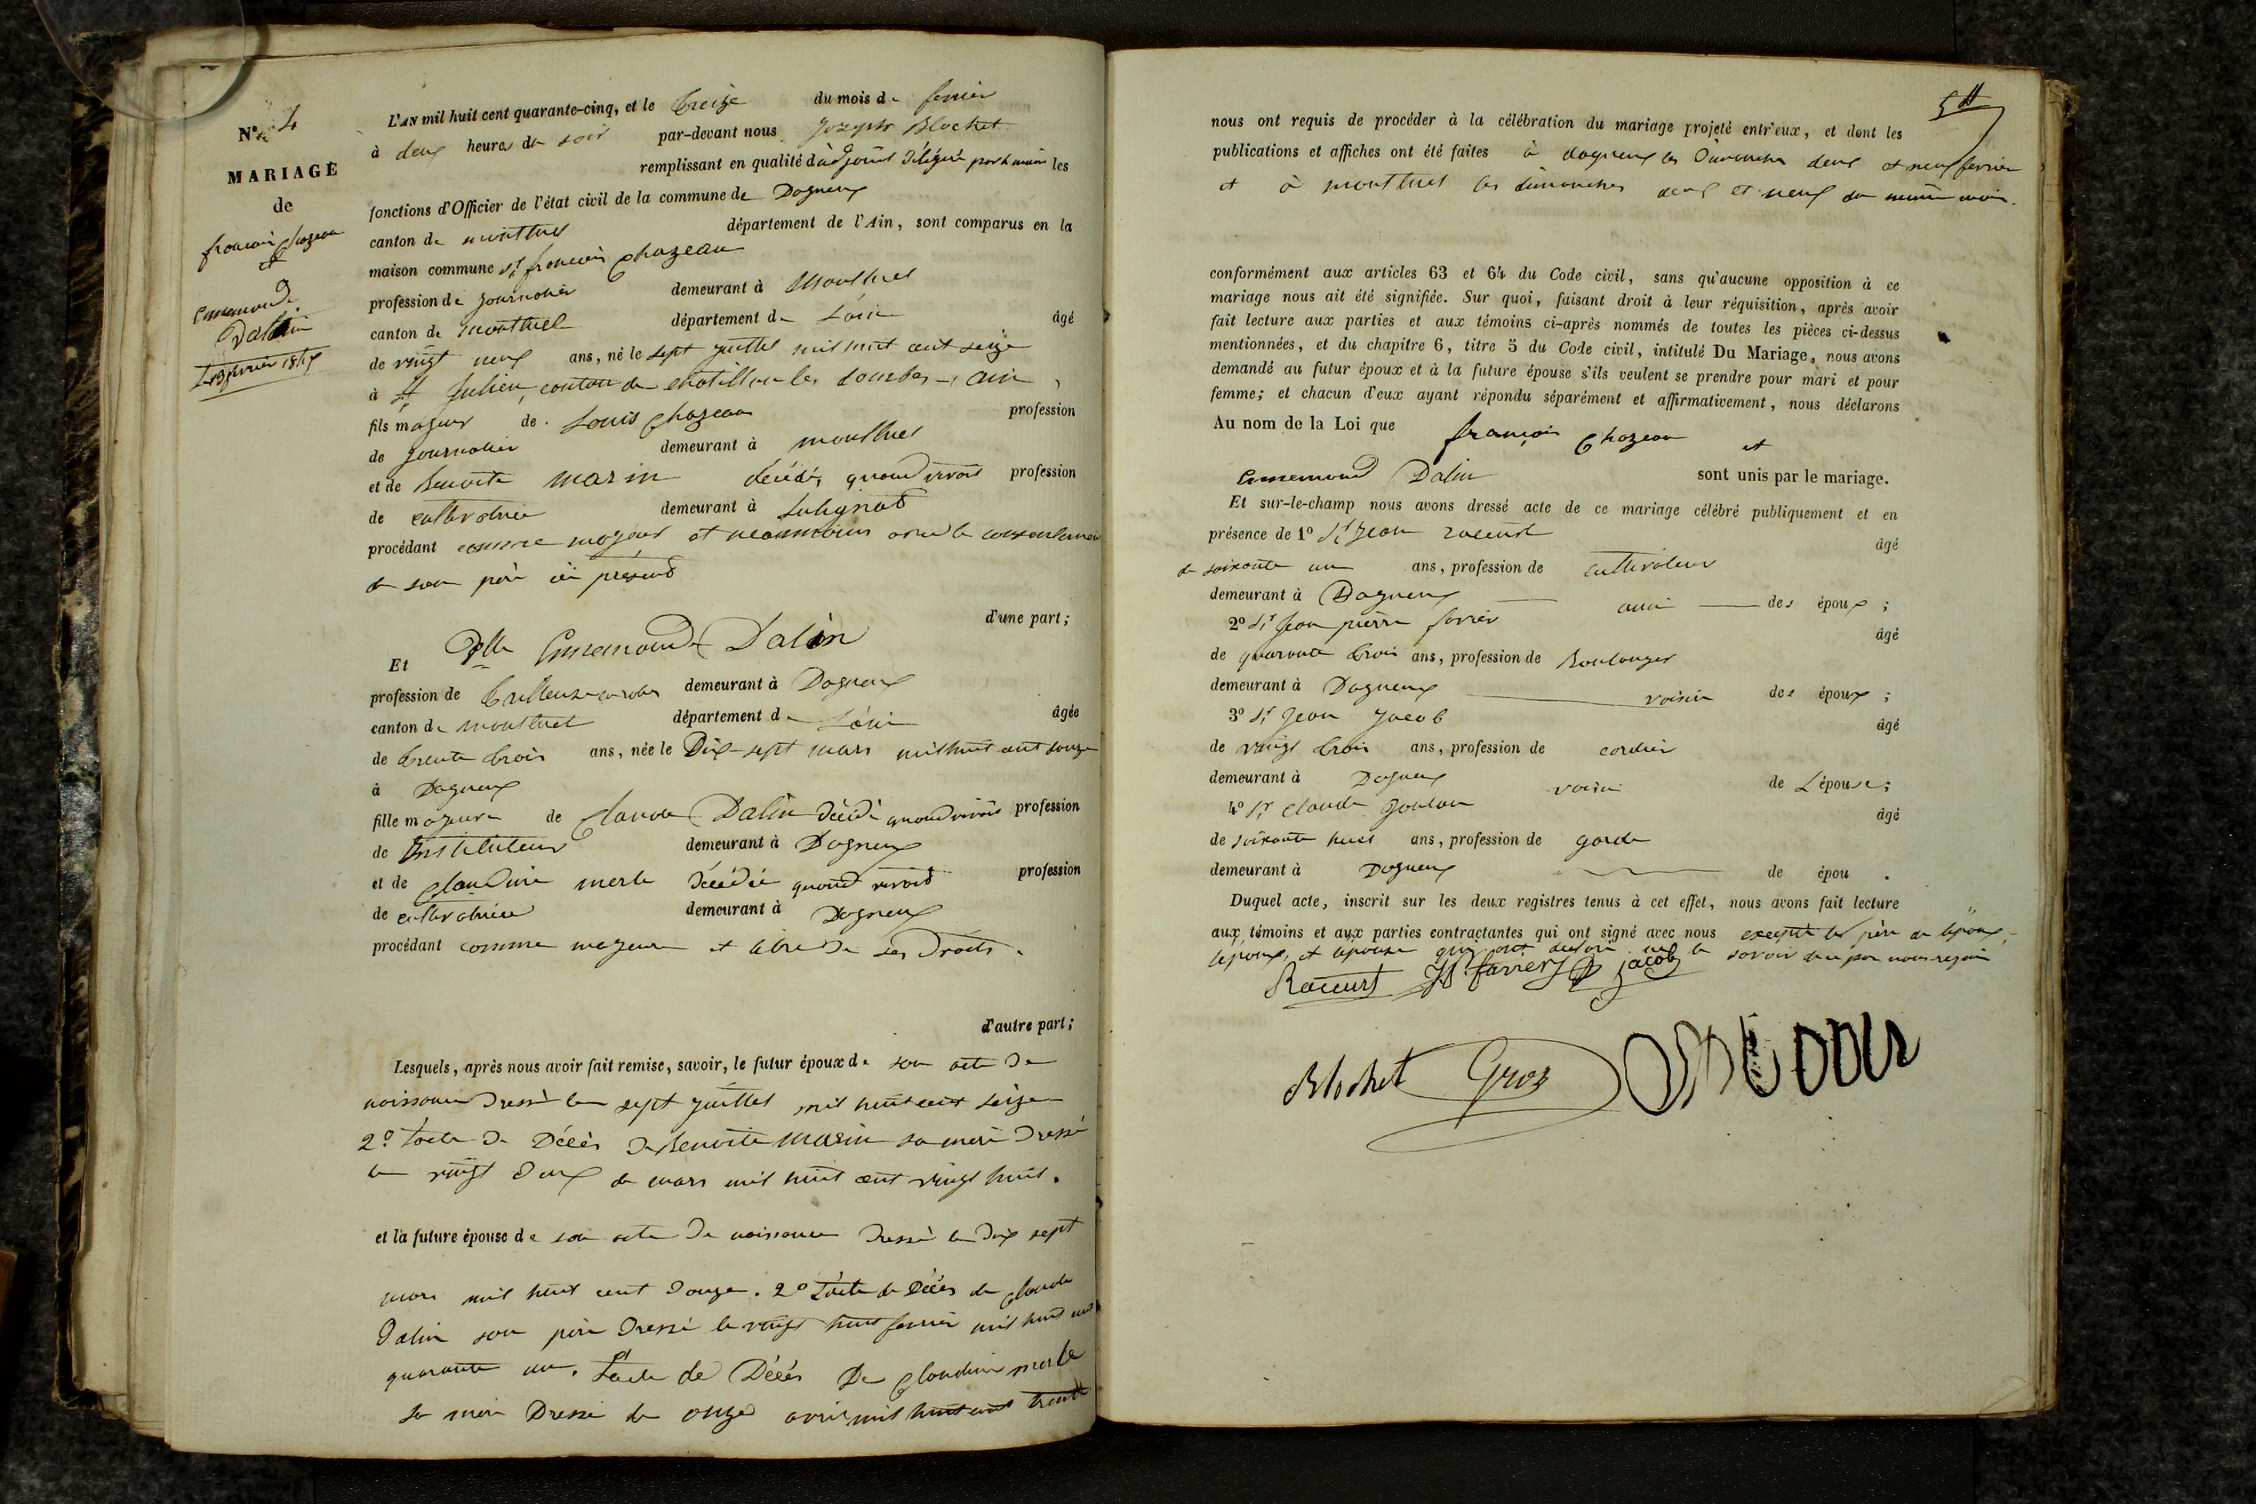 N° 4
MARIAGE
de
françois Chazeau
et
Ennemonde
Dalin
13 février 1845
L'AN mil huit cent quarante-cinq, et le treize du mois de fevrier
à deux heures du soir par-devant nous Joseph Blochet
remplissant en qualité d'adjoint délégué par le maire les
fonctions d'Officier de l'état civil de la commune de Dagneux
canton de montluel département de l'Ain, sont comparus en la
maison commune Sr françois Chazeau
profession de journalier demeurant à Montluel
canton de montluel département de L'ain âgé
de vingt neuf ans, né le sept juillet mil huit cent seize
à St Julien, canton de chatillon les dombes, ain,
fils majeur de Louis Chazeau profession
de journalier demeurant à montluel
et de Benoite marin décédée, quand vivait profession
de cultivatrice demeurant à Sulignat
procédant comme majeur et neanmoins avec le consentement
de son père ici présent
d'une part;
Et Dlle Ennemonde Dalin
profession de demeurant à Dagneux
canton de montluel département de L'ain âgée
de trente trois ans, née le Dix-sept mars mil huit cent douze
à Dagneux
fille majeure de Claude Dalin décédé quand vivait profession
de Instituteur demeurant à Dagneux
et de Claudine merle décédée quand vivait profession
de cultivatrice demeurant à Dagneux
procédant comme majeure et libre de ses droits.
d'autre part;
Lesquels, après nous avoir fait remise, savoir, le futur époux de son acte de
naissance dressé le sept juillet mil huit cent seize
2° l'acte de décès de Benoite marin sa mère dressé
le vingt deux de mars mil huit cent vingt huit.
et la future épouse de son acte de naissance dressé le dix sept
mars mil huit cent douze. 2° L'acte de décès de Claude
Dalin son père dressé le vingt huit fevrier mil huit cent
quarante un. L'acte de Décès De Claudine merle
sa mère Dressé le onze avril mil huit cent trente
5
nous ont requis de procéder à la célébration du mariage projeté entr'eux, et dont les
publications et affiches ont été faites à dagneux les dimanches deux et neuf fevrier
et à montluel les dimanches deux et neuf du même mois.
conformément aux articles 63 et 64 du Code civil, sans qu'aucune opposition à ce
mariage nous ait été signifiée. Sur quoi, faisant droit à leur réquisition, après avoir
fait lecture aux parties et aux témoins ci-après nommés de toutes les pièces ci-dessus
mentionnées, et du chapitre 6, titre 5 du Code civil, intitulé Du Mariage, nous avons
demandé au futur époux et à la future épouse s'ils veulent se prendre pour mari et pour
femme; et chacun d'eux ayant répondu séparément et affirmativement, nous déclarons
Au nom de la Loi que françois Chazeau et
Ennemonde Dalin sont unis par le mariage.
Et sur-le-champ nous avons dressé acte de ce mariage célébré publiquement et en
présence de 1° Sr Jean racurt âgé
de soixante un ans, profession de cultivateur
demeurant à Dagneux ami des époux;
2° Sr Jean pierre favrier âgé
de quarante trois ans, profession de Boulanger
demeurant à Dagneux voisin des époux;
3° Sr Jean Jacob âgé
de vingt trois ans, profession de cordier
demeurant à Dagneux voisin de L'épouse;
4° Sr Claude âgé
de soixante huit ans, profession de garde
demeurant à Dagneux de épou .
Duquel acte, inscrit sur les deux registres tenus à cet effet, nous avons fait lecture
aux témoins et aux parties contractantes qui ont signé avec nous excepté le père de l'époux,
l'époux, et l'épouse qui ont déclaré ne le savoir de ce par nous requis
Racurt favrier jacob
Blochet Groz